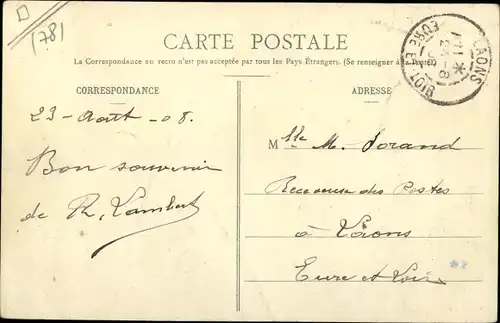 (78)
CARTE POSTALE
La Correspondance au recto n'est pas acceptée par tous les Pays Étrangers. (Se renseigner à la Poste).
CORRESPONDANCE
ADRESSE
23 - Août - 08.
Bon souvenir
de R. Lambert
Mlle M. Jorand
Receveuse des Postes
à Laons
Eure et Loir
LAONS
24 - 8
EURE ET LOIR